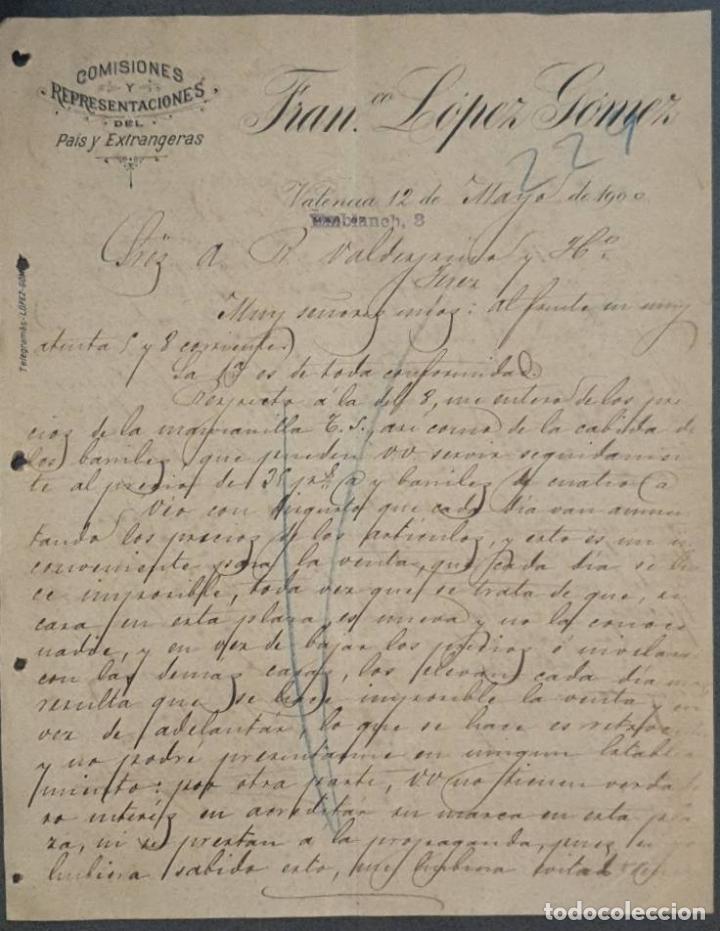 COMISIONES
Y
REPRESENTACIONES
DEL
País y Extrangeras
Fran.co López Gómez
221
Valencia 12 de Mayo de 1900
Telegramas: LÓPEZ-GÓMEZ
Sres A. R. Valdespino y Ho.
Jerez
Muy señores mios: al frente su muy
atenta 5 y 8 corrientes.
La 1ª es de toda conformidad.
Respecto á la del 8, me entero de los pre
cios de la manzanilla T. S., asi como de la cabida de
los barriles, que pueden VV servir seguidamen
te al precio de 38 y barriles de cuatro
Veo con disgusto que cada dia van aumen
tando los precios de los articulos, y esto es un in
conveniente para la venta, que cada dia se ha
ce imposible, toda vez que se trata de que, su
casa en esta plaza, es nueva y no la conoce
nadie, y en vez de bajar los precios ó nivelarse
con las demas casas, los elevan cada dia
resulta que se hace imposible la venta y en
vez de adelantar, lo que se hace es
y no podré presentarme en ningun Estable
cimiento: por otra parte, VV no tienen verdade
ro interés en acreditar su marca en esta pla
za, ni se prestan á la propaganda, pues si yo
hubiera sabido esto, me hubiera
todocoleccion.net